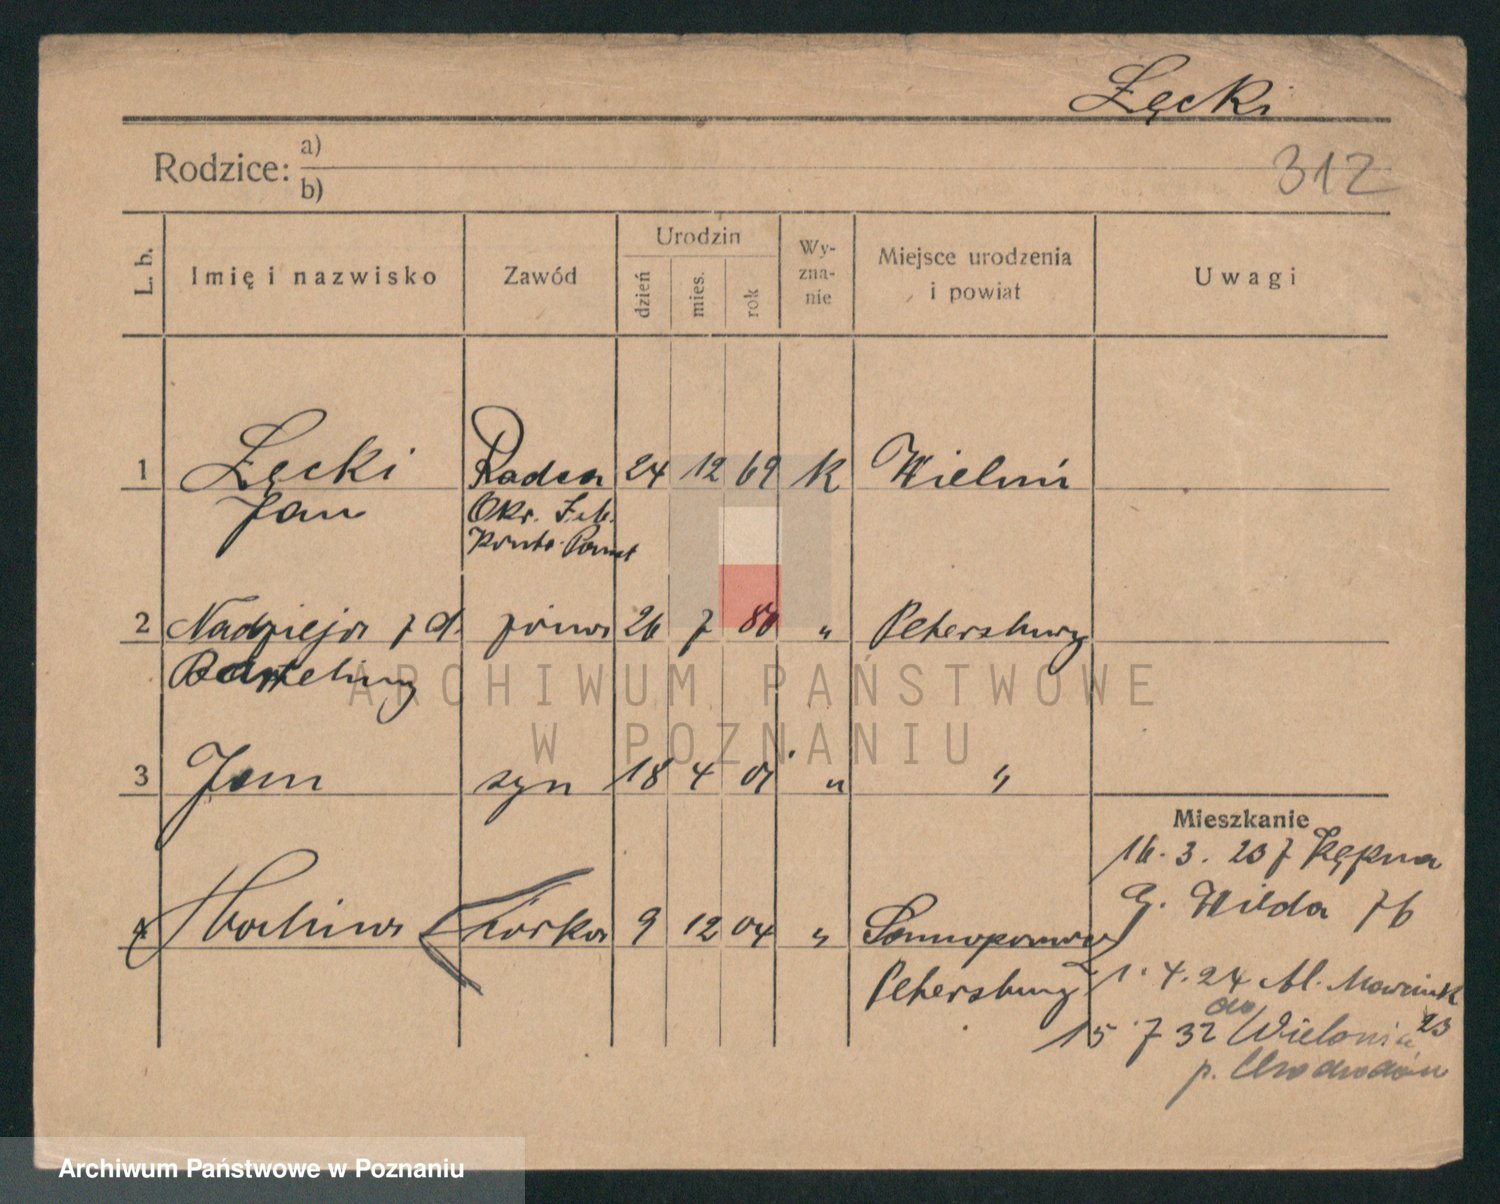 Łęcki
312
Rodzice: a)
b)
L. b. Imię i nazwisko Zawód Urodzin dzień mies. rok Wy-zna-nie Miejsce urodzenia i powiat Uwagi
1 Łęcki Radca 24 12 69 k Wieluń
Jan Okr.
2 Nadzieja z d. żona 26 7 80 " Petersburg
ARCHIWUM PAŃSTWOWE
W POZNANIU
3 Jan syn 18 4 01 " "
Mieszkanie
16. 3. 23 z Kępna
4 córka 9 12 04 "
G. Wilda 76
Petersburg
1. 4. 24 Al. Marcink 23
15 7 32 do
p.
Archiwum Państwowe w Poznaniu